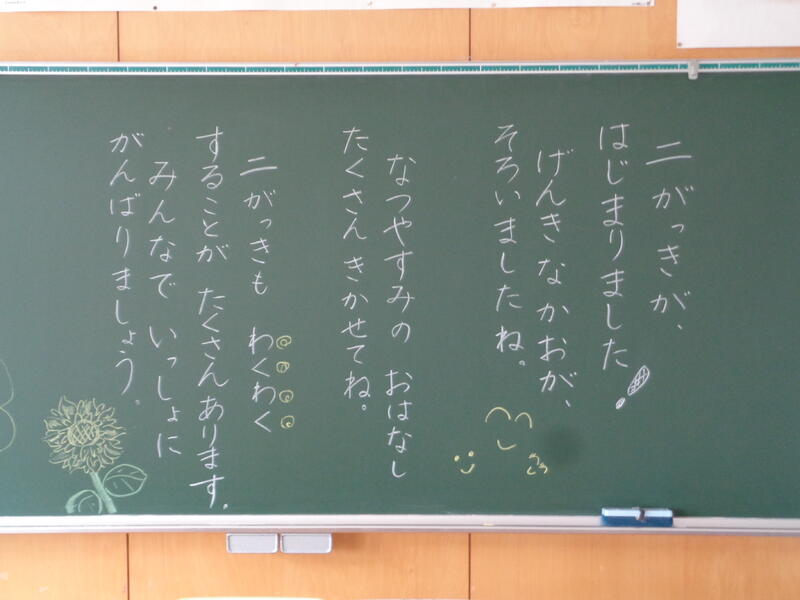 二がっきが、
はじまりました!
げんきなかおが、
そろいましたね。
なつやすみの おはなし
たくさん きかせてね。
二がっきも わくわく
することが たくさんあります。
みんなで いっしょに
がんばりましょう。